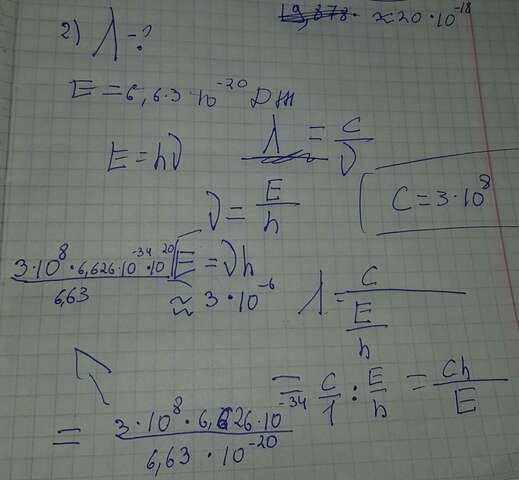 ≈20·10^-18
2) λ-?
E=6,63·10^-20 Дж
E=hν λ = c/ν
ν = E/h
C=3·10^8
E=νh
3·10^8·6,626·10^-34·10^20/6,63 ≈ 3·10^-6
λ = c/(E/h)
= c/1 : E/h = ch/E
= 3·10^8·6,626·10^-34/6,63·10^-20